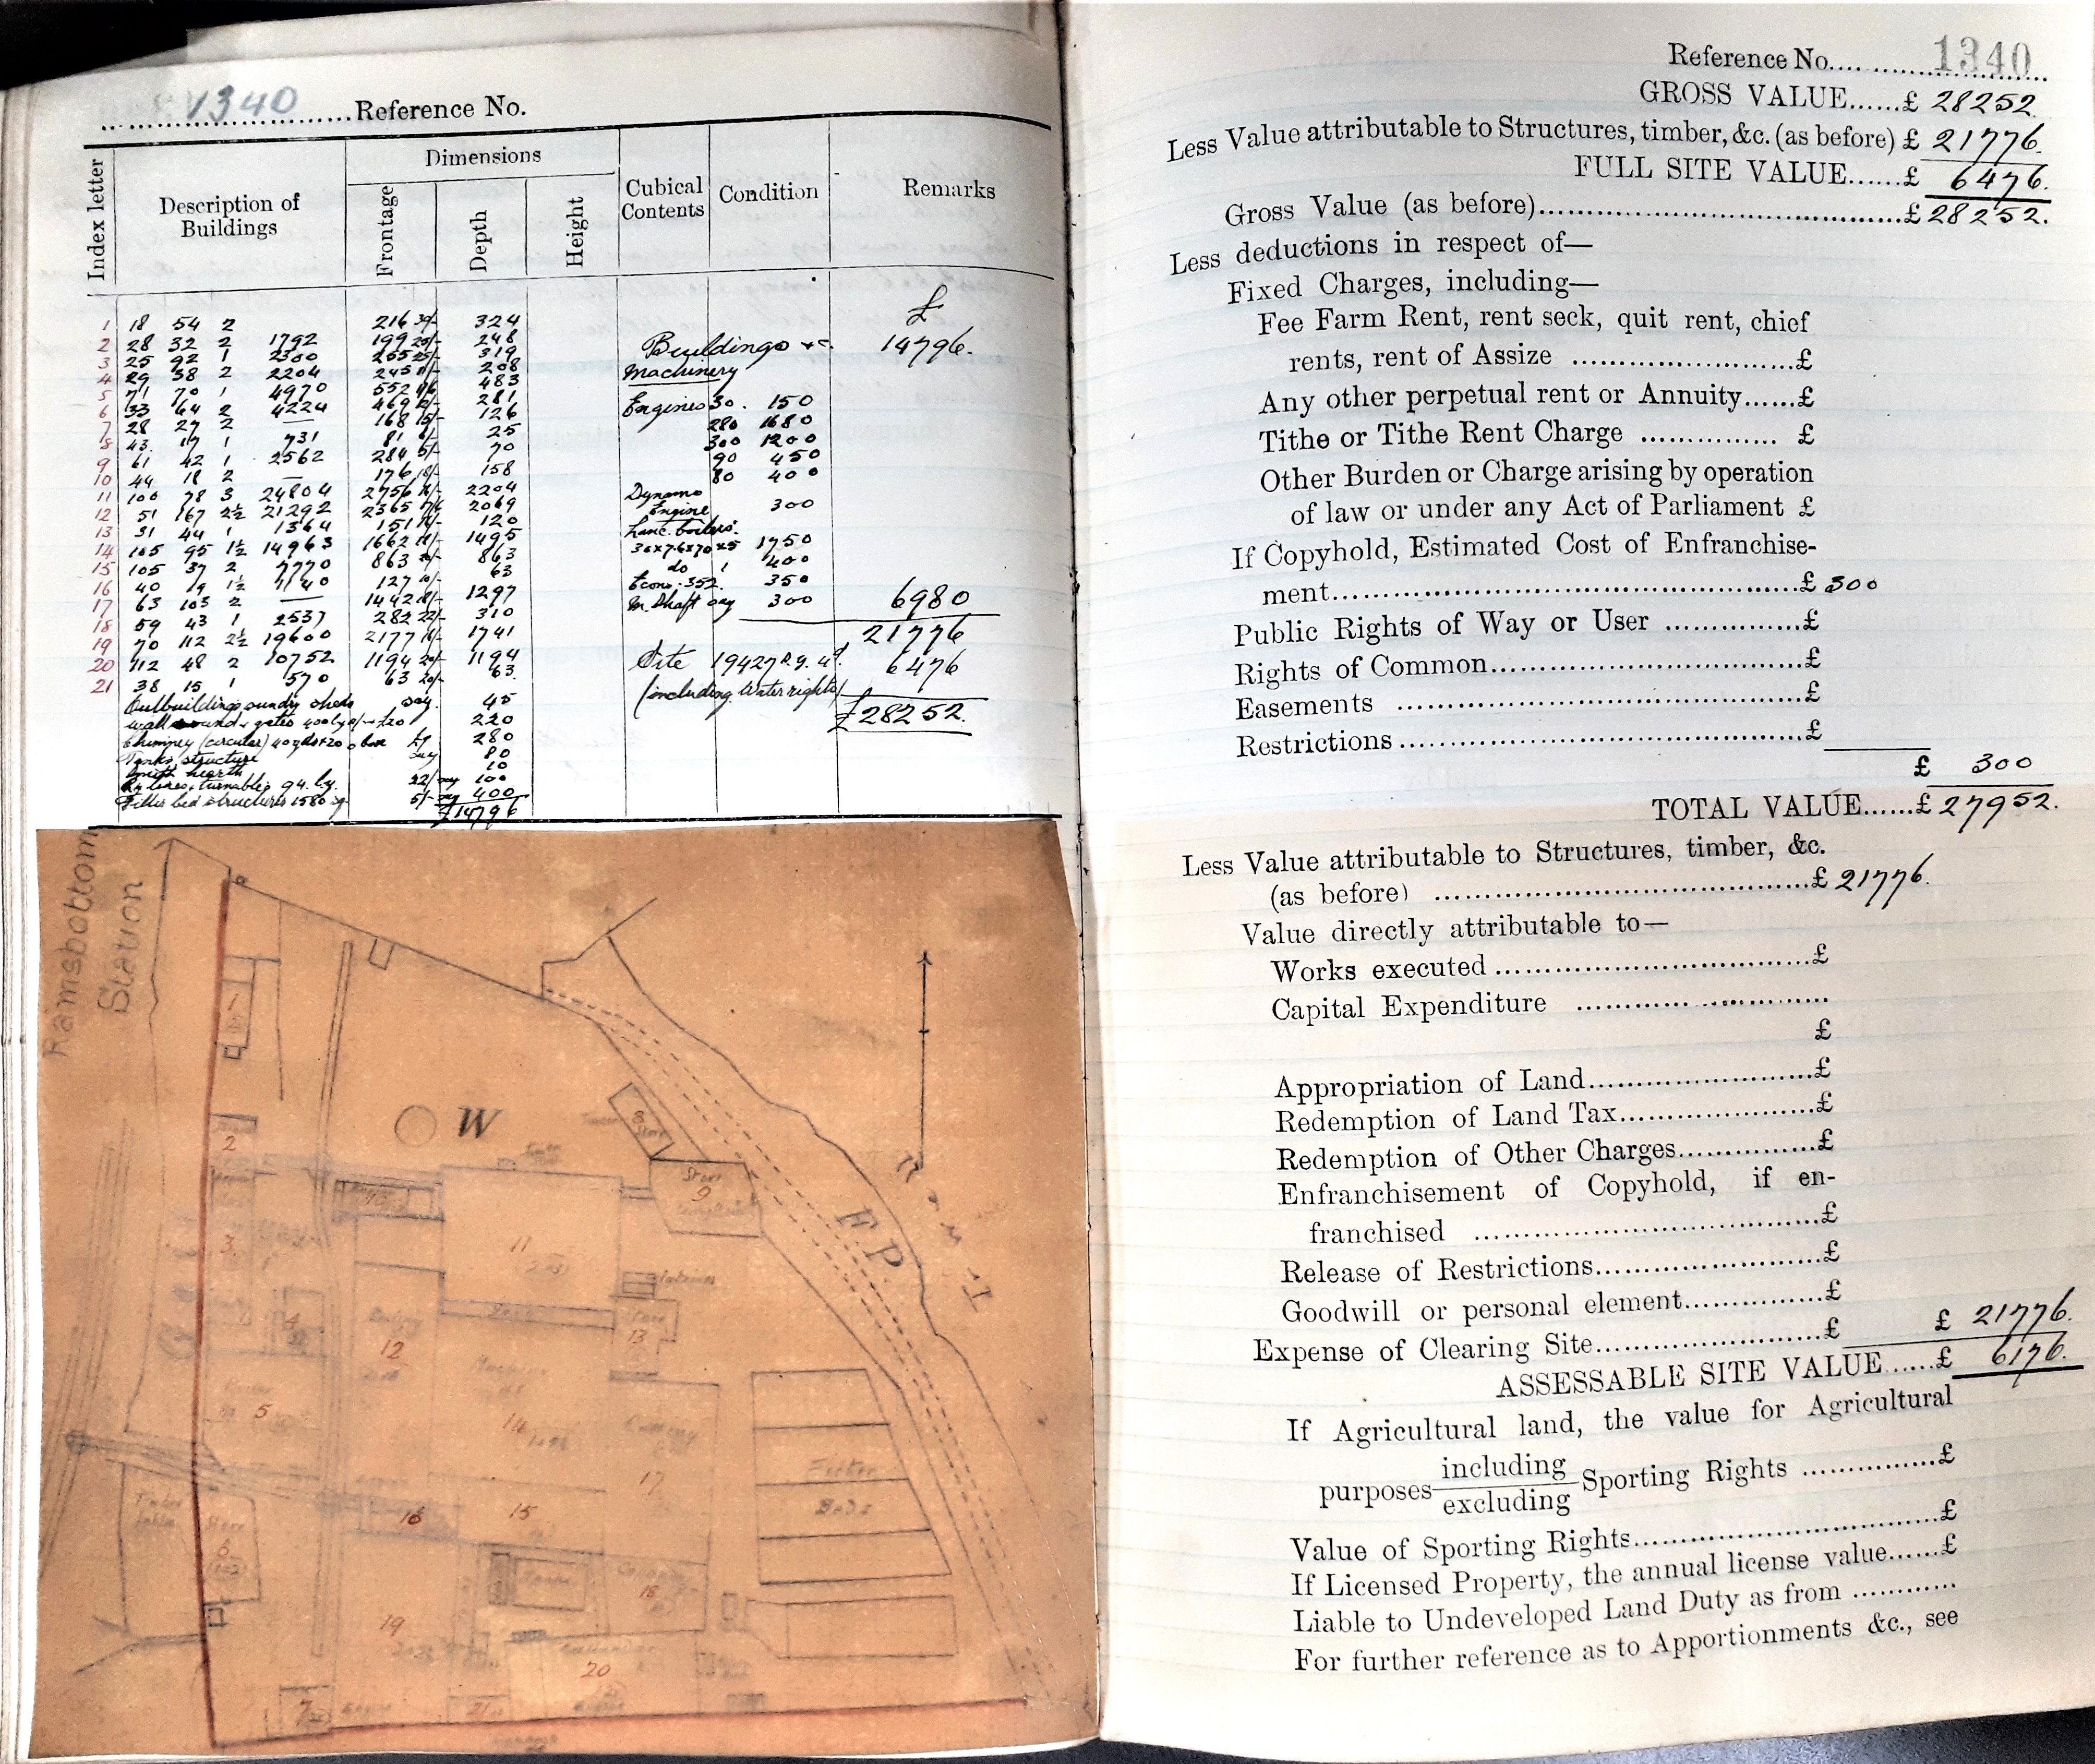 1340 Reference No.
Index letter
Description of Buildings
Dimensions
Frontage
Depth
Height
Cubical Contents
Condition
Remarks
£
1 18 54 2 216 324
2 28 32 2 1792 199 248
3 25 92 1 2300 255 319
4 29 38 2 2204 245 208
5 71 70 1 4970 552 483
6 33 64 2 4224 469 281
7 28 27 2 — 168 15/- 126
8 43 17 1 731 81 6/- 25
9 61 42 1 2562 284 5/- 70
10 44 18 2 — 176 18/- 158
11 100 78 3 24804 2756 16/- 2204
12 51 167 2½ 21292 2365 17/6 2069
13 31 44 1 1364 151 120
14 105 95 1½ 14963 1662 18/- 1495
15 105 37 2 7770 863 20/- 863
16 40 19 1½ 1140 127 10/- 63
17 63 103 2 — 1442 18/- 1297
18 59 43 1 2537 282 22/- 310
19 70 112 2½ 19600 2177 16/- 1741
20 112 48 2 10752 1194 20/- 1194
21 38 15 1 570 63 20/- 63
Outbuildings sundry sheds say 45
wall round & gates 400 220
Chimney (circular) 40 yds x 20 0 base £7 280
Tanks structure say 80
Smith hearth 10
Ry lines & turntables 94 l.y. 22/- say 100
Filter bed structures 1580 5/- say 400
£14796
Buildings &c 14796.
Machinery
Engines 30. 150
280 1680
300 1200
90 450
80 400
Dynamo
Engine 300
Lanc. boilers:
30 x 7.6 x 70 x 5 1750
do 1 400
Econ: 352 350
M. Shaft say 300 6980
21776
Site 19427 sq. yd. 6476
(including Water rights)
£28252.
Ramsbottom
Station
W
F.P.
1
2
3
4
5
6
7
8
Store
9
11
12
13
14
15
16
17
18
19
20
21
Filter
Beds
Reference No. 1340
GROSS VALUE......£ 28252
Less Value attributable to Structures, timber, &c. (as before) £ 21776.
FULL SITE VALUE......£ 6476.
Gross Value (as before)......£ 28252.
Less deductions in respect of—
Fixed Charges, including—
Fee Farm Rent, rent seck, quit rent, chief
rents, rent of Assize ......£
Any other perpetual rent or Annuity......£
Tithe or Tithe Rent Charge ...... £
Other Burden or Charge arising by operation
of law or under any Act of Parliament £
If Copyhold, Estimated Cost of Enfranchise-
ment......£ 300
Public Rights of Way or User ......£
Rights of Common......£
Easements ......£
Restrictions......£
£ 300
TOTAL VALUE......£ 27952.
Less Value attributable to Structures, timber, &c.
(as before) ......£ 21776.
Value directly attributable to—
Works executed......£
Capital Expenditure ......
£
Appropriation of Land......£
Redemption of Land Tax......£
Redemption of Other Charges......£
Enfranchisement of Copyhold, if en-
franchised ......£
Release of Restrictions......£
Goodwill or personal element......£
Expense of Clearing Site......£ £ 21776.
ASSESSABLE SITE VALUE......£ 6176.
If Agricultural land, the value for Agricultural
purposes including
excluding Sporting Rights ......£
Value of Sporting Rights......£
If Licensed Property, the annual license value......£
Liable to Undeveloped Land Duty as from ......
For further reference as to Apportionments &c., see